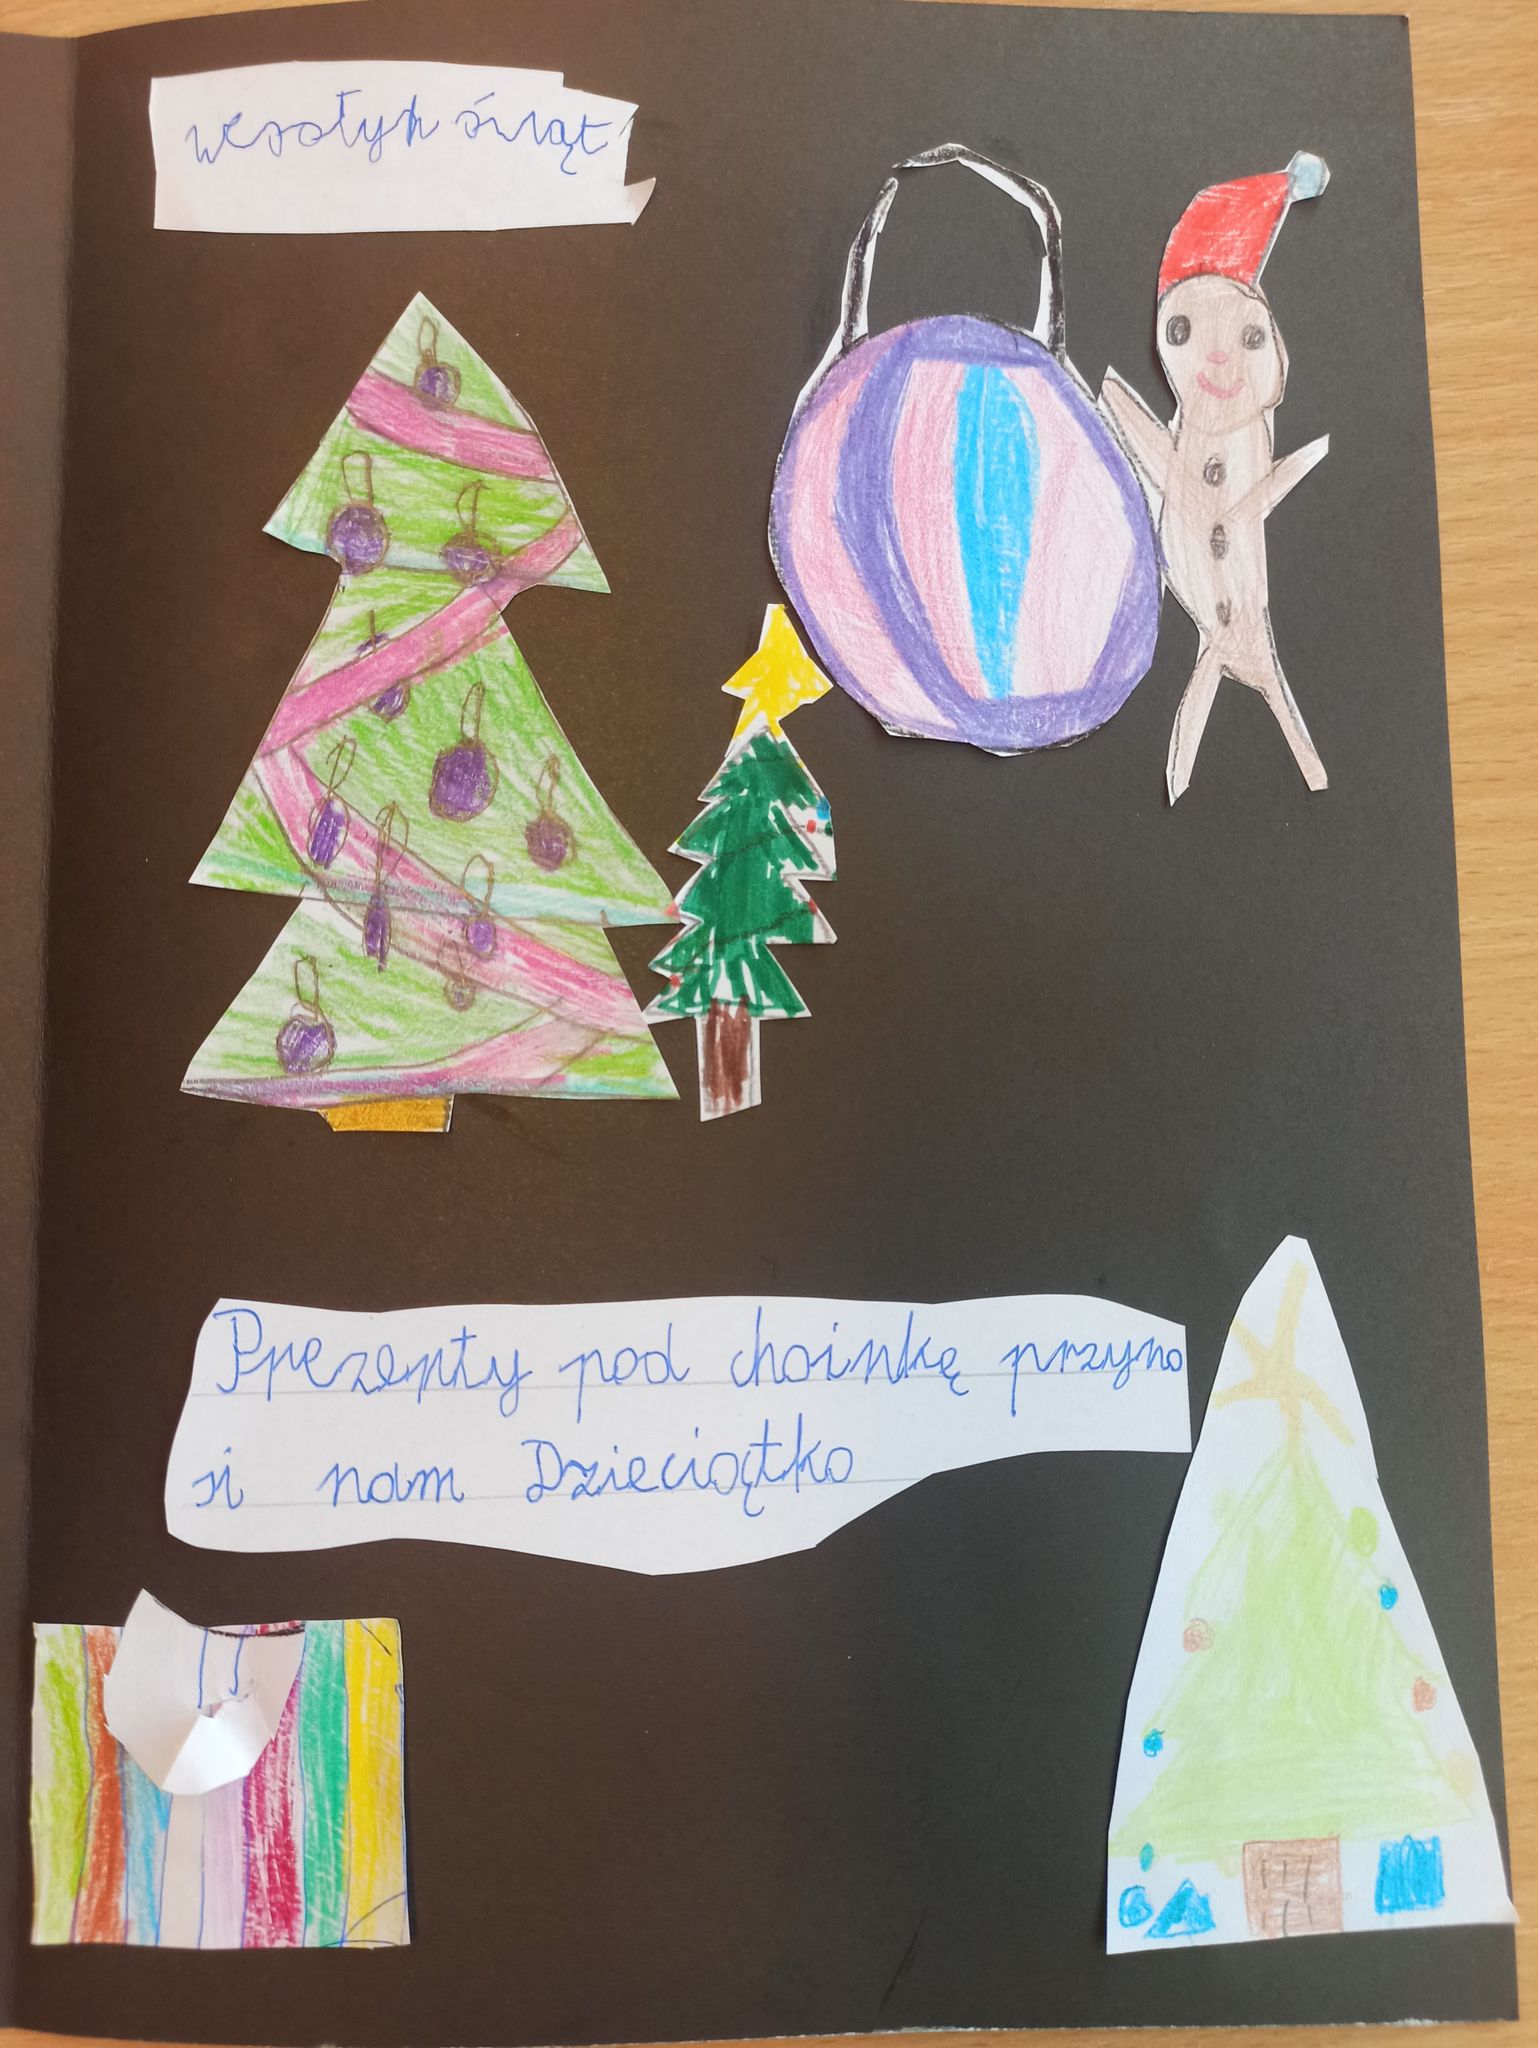 wesołych świąt
Prezenty pod choinkę przyno
si nam Dzieciątko